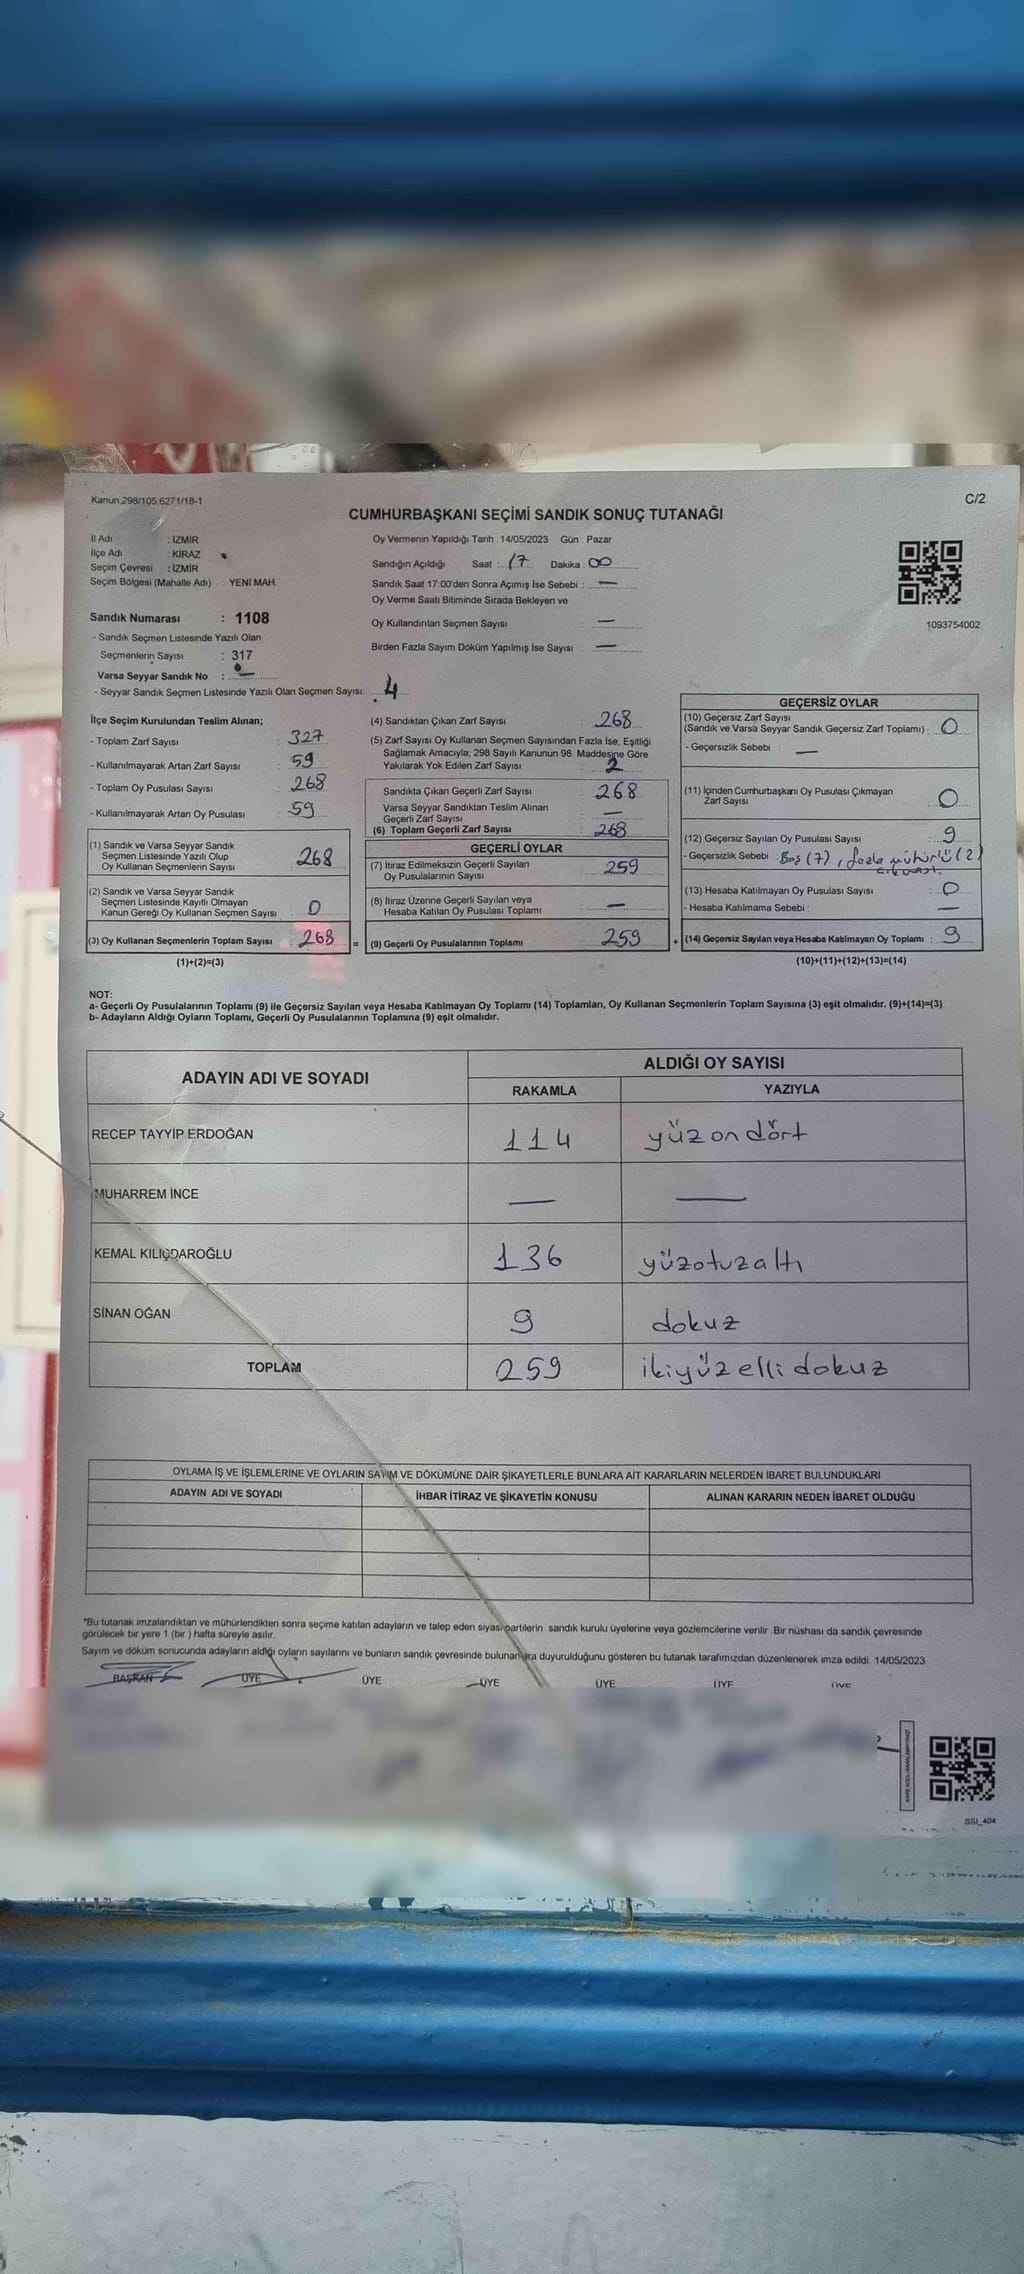 Kanun;298/105,6271/18-1
C/2
CUMHURBAŞKANI SEÇİMİ SANDIK SONUÇ TUTANAĞI
İl Adı : İZMİR
İlçe Adı : KİRAZ
Seçim Çevresi : İZMİR
Seçim Bölgesi (Mahalle Adı) : YENİ MAH.
Sandık Numarası : 1108
- Sandık Seçmen Listesinde Yazılı Olan
Seçmenlerin Sayısı : 317
Varsa Seyyar Sandık No : —
- Seyyar Sandık Seçmen Listesinde Yazılı Olan Seçmen Sayısı: 4
Oy Vermenin Yapıldığı Tarih : 14/05/2023 Gün : Pazar
Sandığın Açıldığı Saat : 17 Dakika : 00
Sandık Saat 17:00'den Sonra Açımış İse Sebebi : —
Oy Verme Saati Bitiminde Sırada Bekleyen ve
Oy Kullandırılan Seçmen Sayısı : —
Birden Fazla Sayım Döküm Yapılmış İse Sayısı : —
1093754002
İlçe Seçim Kurulundan Teslim Alınan;
- Toplam Zarf Sayısı : 327
- Kullanılmayarak Artan Zarf Sayısı : 59
- Toplam Oy Pusulası Sayısı : 268
- Kullanılmayarak Artan Oy Pusulası : 59
(1) Sandık ve Varsa Seyyar Sandık
Seçmen Listesinde Yazılı Olup
Oy Kullanan Seçmenlerin Sayısı : 268
(2) Sandık ve Varsa Seyyar Sandık
Seçmen Listesinde Kayıtlı Olmayan
Kanun Gereği Oy Kullanan Seçmen Sayısı : 0
(3) Oy Kullanan Seçmenlerin Toplam Sayısı : 268 =
(1)+(2)=(3)
(4) Sandıktan Çıkan Zarf Sayısı : 268
(5) Zarf Sayısı Oy Kullanan Seçmen Sayısından Fazla İse, Eşitliği
Sağlamak Amacıyla; 298 Sayılı Kanunun 98. Maddesine Göre
Yakılarak Yok Edilen Zarf Sayısı : 2
Sandıkta Çıkan Geçerli Zarf Sayısı : 268
Varsa Seyyar Sandıktan Teslim Alınan
Geçerli Zarf Sayısı : —
(6) Toplam Geçerli Zarf Sayısı : 268
GEÇERLİ OYLAR
(7) İtiraz Edilmeksizin Geçerli Sayılan
Oy Pusulalarının Sayısı : 259
(8) İtiraz Üzerine Geçerli Sayılan veya
Hesaba Katılan Oy Pusulası Toplamı : —
(9) Geçerli Oy Pusulalarının Toplamı : 259 +
GEÇERSİZ OYLAR
(10) Geçersiz Zarf Sayısı
(Sandık ve Varsa Seyyar Sandık Geçersiz Zarf Toplamı) : 0
- Geçersizlik Sebebi : —
(11) İçinden Cumhurbaşkanı Oy Pusulası Çıkmayan
Zarf Sayısı : 0
(12) Geçersiz Sayılan Oy Pusulası Sayısı : 9
- Geçersizlik Sebebi : Boş (7), fazla mühürlü (2)
çıkması
(13) Hesaba Katılmayan Oy Pusulası Sayısı : 0
- Hesaba Katılmama Sebebi : —
(14) Geçersiz Sayılan veya Hesaba Katılmayan Oy Toplamı : 9
(10)+(11)+(12)+(13)=(14)
NOT:
a- Geçerli Oy Pusulalarının Toplamı (9) ile Geçersiz Sayılan veya Hesaba Katılmayan Oy Toplamı (14) Toplamları, Oy Kullanan Seçmenlerin Toplam Sayısına (3) eşit olmalıdır. (9)+(14)=(3)
b- Adayların Aldığı Oyların Toplamı, Geçerli Oy Pusulalarının Toplamına (9) eşit olmalıdır.
ADAYIN ADI VE SOYADI
ALDIĞI OY SAYISI
RAKAMLA YAZIYLA
RECEP TAYYİP ERDOĞAN 114 yüzondört
MUHARREM İNCE — —
KEMAL KILIÇDAROĞLU 136 yüzotuzaltı
SİNAN OĞAN 9 dokuz
TOPLAM 259 ikiyüzellidokuz
OYLAMA İŞ VE İŞLEMLERİNE VE OYLARIN SAYIM VE DÖKÜMÜNE DAİR ŞİKAYETLERLE BUNLARA AİT KARARLARIN NELERDEN İBARET BULUNDUKLARI
ADAYIN ADI VE SOYADI İHBAR İTİRAZ VE ŞİKAYETİN KONUSU ALINAN KARARIN NEDEN İBARET OLDUĞU
*Bu tutanak imzalandıktan ve mühürlendikten sonra seçime katılan adayların ve talep eden siyasi partilerin sandık kurulu üyelerine veya gözlemcilerine verilir. Bir nüshası da sandık çevresinde
görülecek bir yere 1 (bir) hafta süreyle asılır.
Sayım ve döküm sonucunda adayların aldığı oyların sayılarını ve bunların sandık çevresinde bulunanlara duyurulduğunu gösteren bu tutanak tarafımızdan düzenlenerek imza edildi. 14/05/2023
BAŞKAN ÜYE ÜYE ÜYE ÜYE ÜYE ÜYE
SSI_404